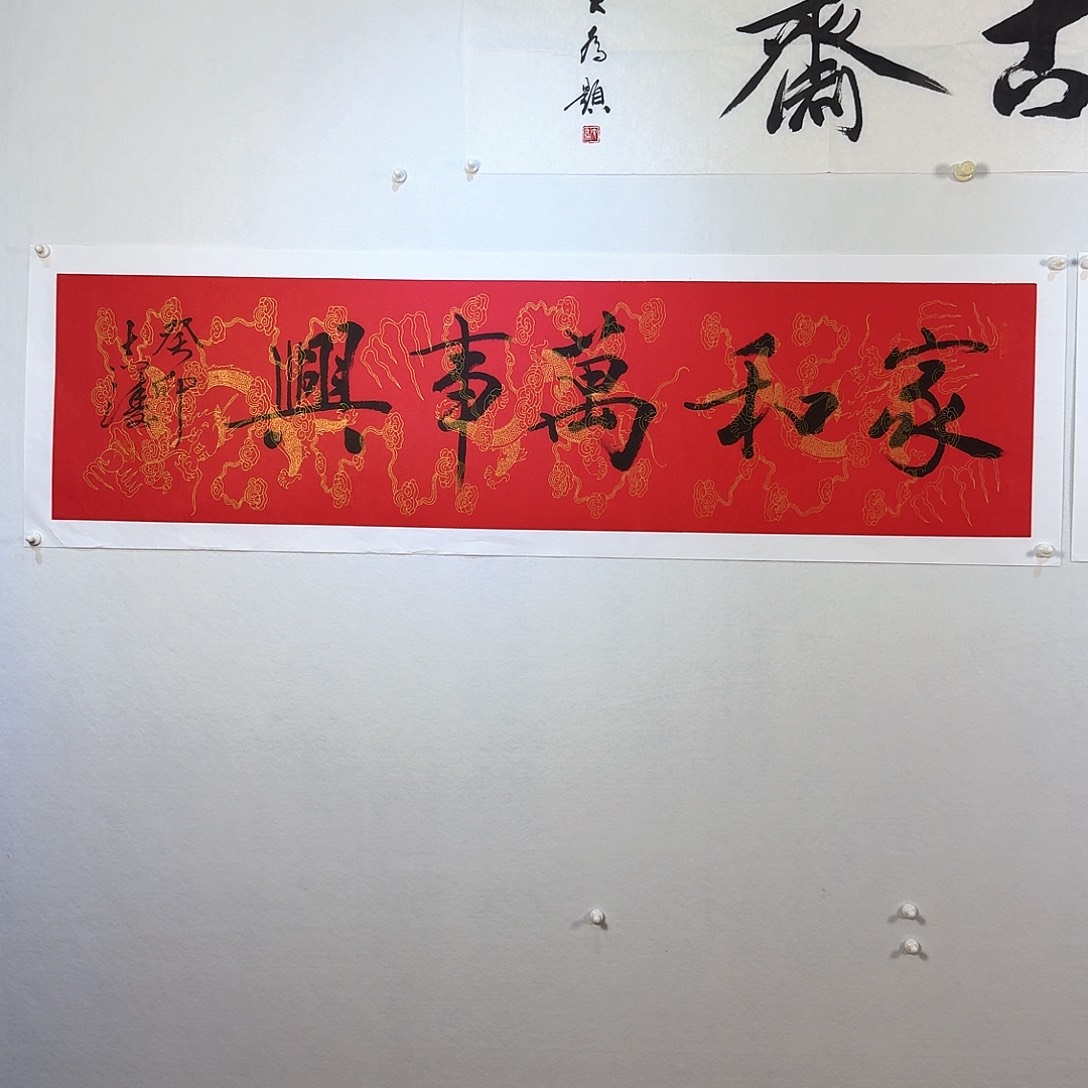 古齋
為題
家和萬事興
癸卯